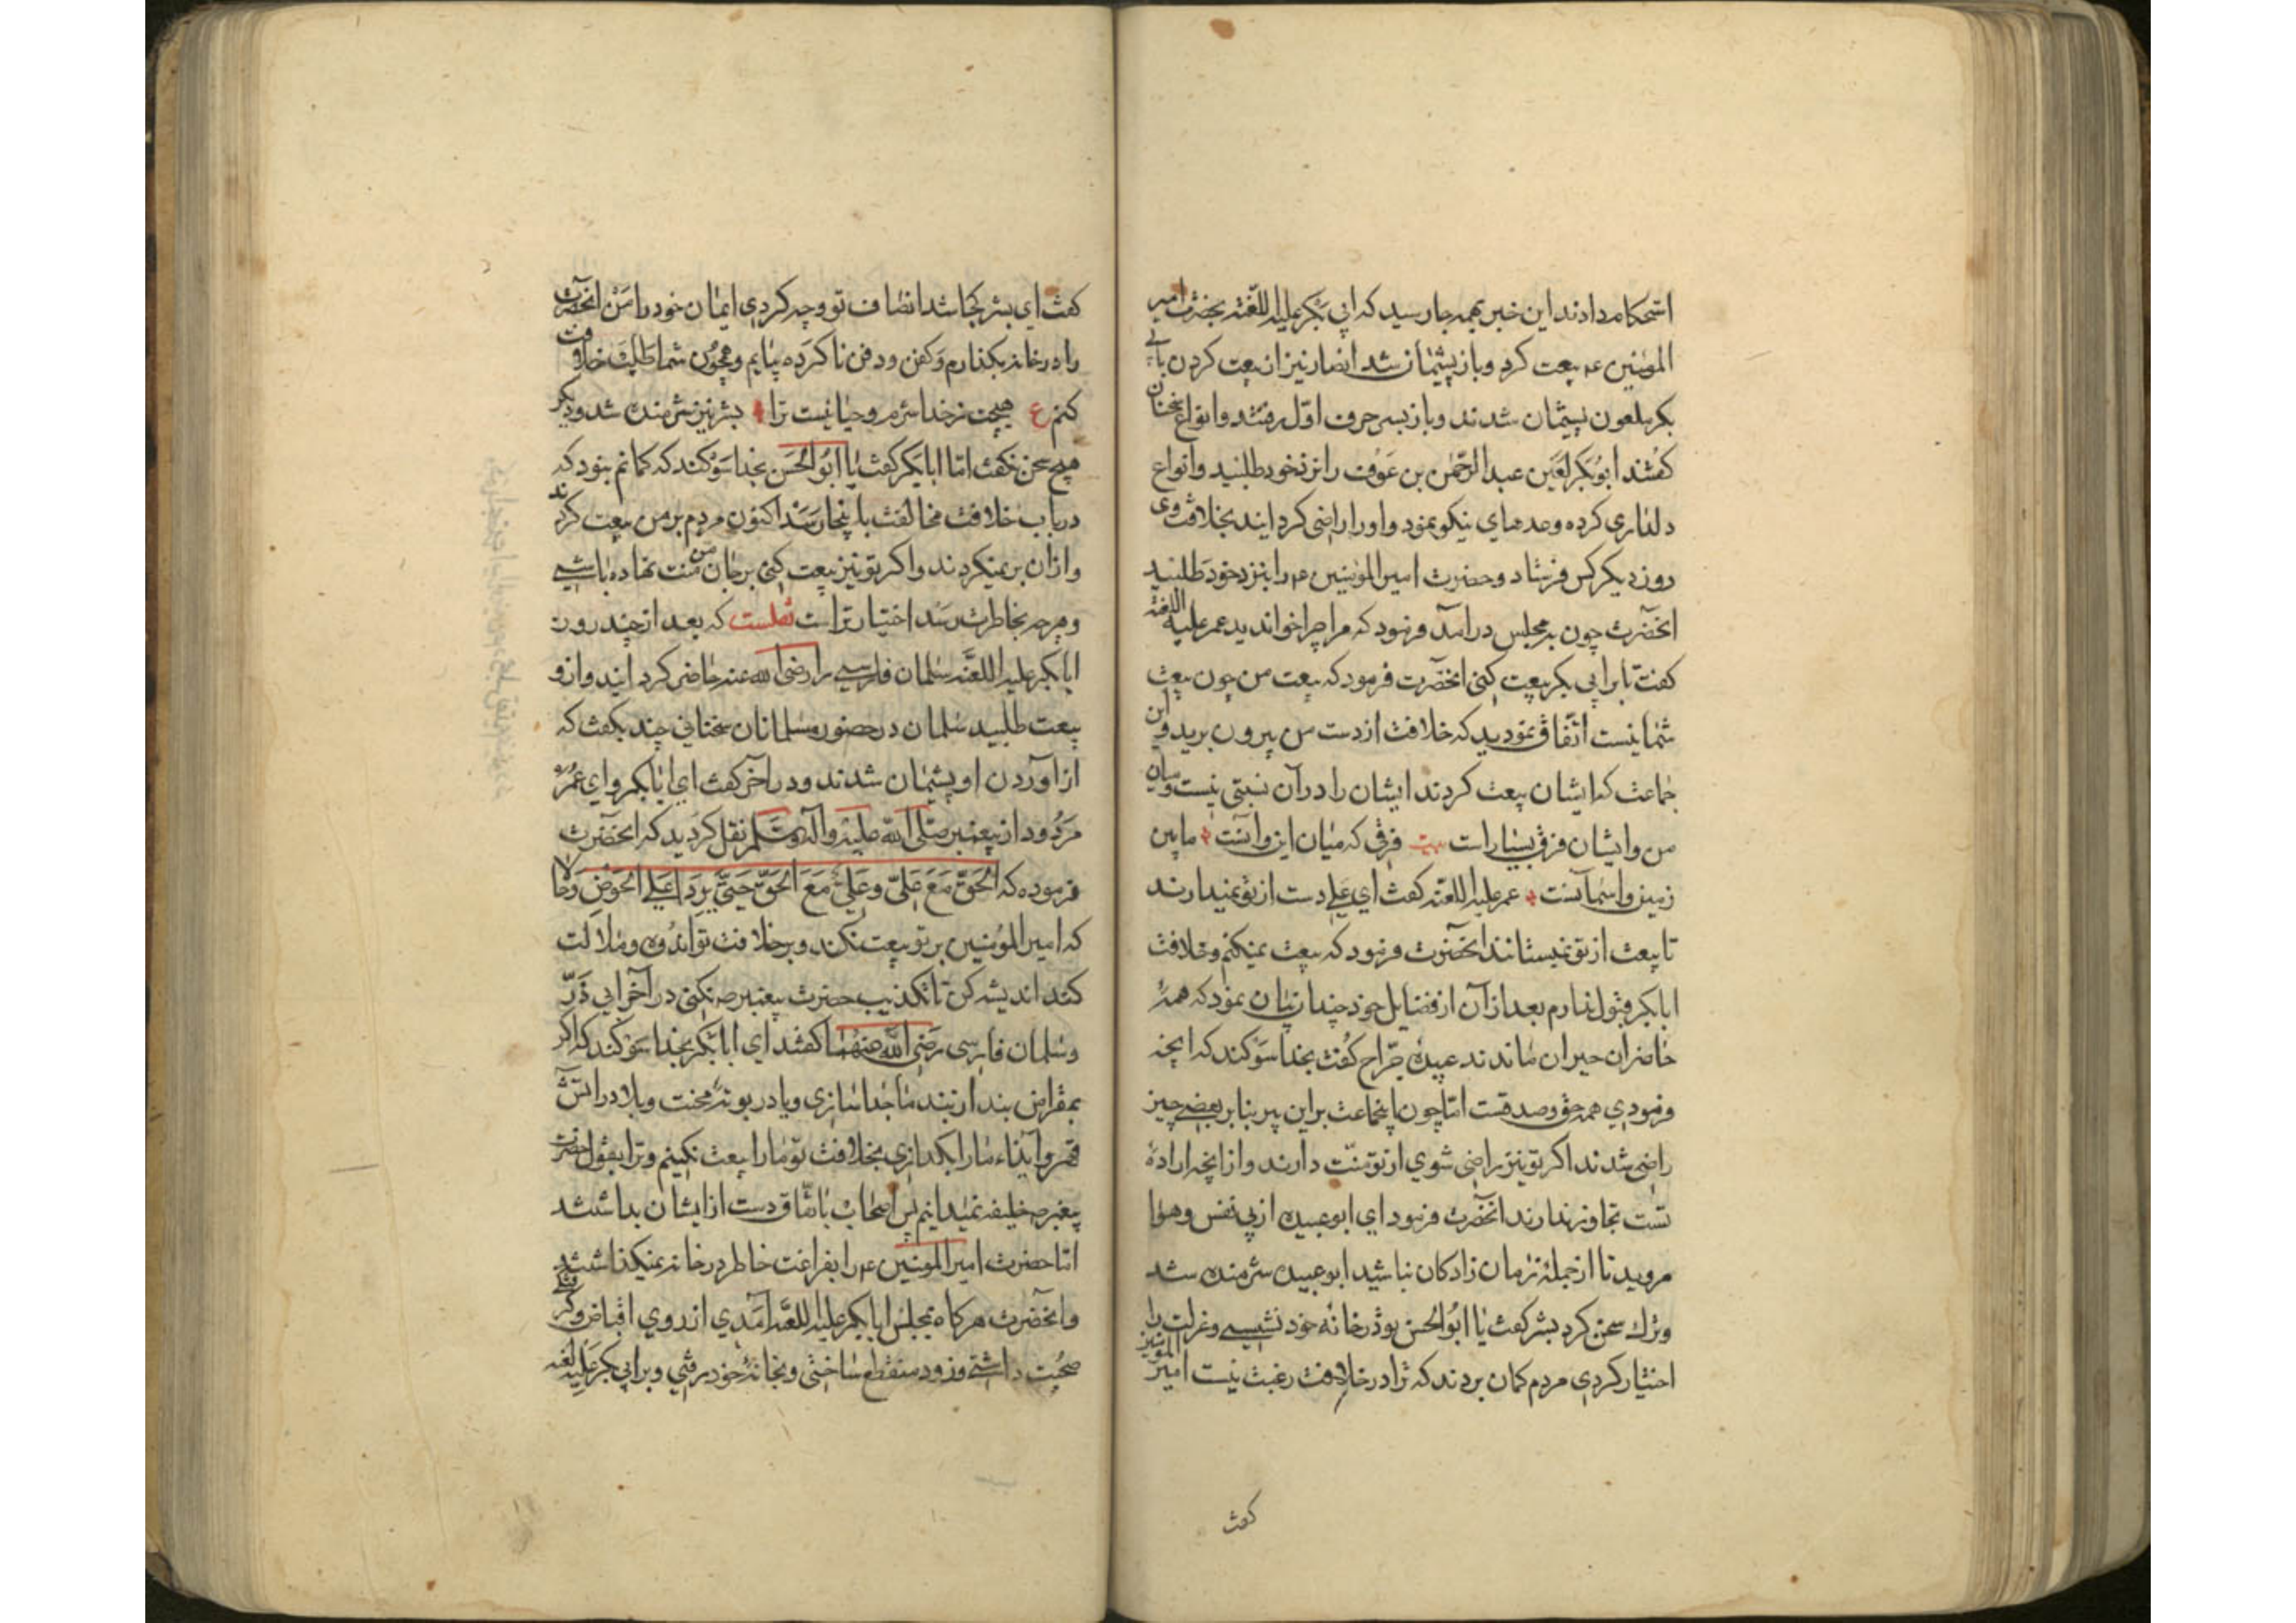 استحکام دادند این خبر بهمه جا رسید که ابی بکر علیه اللعنه بحضرت امیر
المؤمنین ع‍م بیعت کرد و باز پشیمان شد انصار نیز از بیعت کردن بابی
بکر ملعون پشیمان شدند و باز بسر حرف اول رفتند و انواع سخنان
کفتند ابوبکر لعین عبد الرحمن بن عوف را نزد خود طلبید و انواع
دلداری کرده وعدهای نیکو نمود و او را راضی کردانید بخلافت وی
روز دیکر کس فرستاد و حضرت امیر المؤمنین ع‍م را بنزد خود طلبید
انحضرت چون بمجلس درامد فرمود که مرا چرا خواندید عمر علیه اللعنه
کفت تا بر ابی بکر بیعت کنی انحضرت فرمود که بیعت من چون بیعت
شما نیست اتفاق نمودید که خلافت از دست من بیرون برید و این
جماعت که ایشان بیعت کردند ایشان را در آن نسبتی نیست و میان
من و ایشان فرق بسیار است بیت فرقی که میان این و آنست ما بین
زمین و اسمانست عمر علیه اللعنه کفت ای علی دست از تو نمیدارند
تا بیعت از تو نمیستانند انحضرت فرمود که بیعت نمیکنم و خلافت
ابابکر قبول ندارم بعد از آن از فضایل خود چندان بیان نمود که همهٔ
حاضران حیران ماندند عبیده جراح کفت بخدا سوکند که انچه
فرمودی همه حق و صدقست اما چون اینجماعت براین پیر بنا بر بعضی چیز
راضی شدند اکر تو نیز راضی شوی از تو منت دارند و از انچه ارادهٔ
تست تجاوز ندارند انحضرت فرمود ای ابوعبیده از پی نفس و هوا
مروید تا از جملهٔ زمان زادکان نباشید ابوعبیده شرمنده شد
و ترک سخن کرد بشر کفت یا ابوالحسن تو در خانه خود نشستی و عزلت را
اختیار کردی مردم کمان بردند که ترا در خلافت رغبت نیست امیر المؤمنین
کفت
کفت ای بشر کجا شد انصاف تو و چه کردی ایمان خود را من انحضرت
را در خانه بکذارم و کفن و دفن ناکرده بیایم و همچون شما طلب خلافت
کنم ع هیچت ز خدا شرم و حیا نیست ترا بشر نیز شرمنده شد و دیکر
هیچ سخن نکفت اما ابابکر کفت یا ابوالحسن بخدا سوکند که کمانم نبود که
در باب خلافت مخالفت باینجا رسد اکنون مردم بر من بیعت کردند
و از ان بر نمیکردند و اکر تو نیز بیعت کنی بر جان من منت نهاده باشی
و هر چه بخاطرت رسد اختیار تراست نقلست که بعد از چند روز
ابابکر علیه اللعنه سلمان فارسی را رضی الله عنه حاضر کردانید و از و
بیعت طلبید سلمان در حضور مسلمانان سخنانی چند بکفت که
از اوردن او پشیمان شدند و در اخر کفت ای ابابکر و ای عمر
مردود از پیغمبر صلی الله علیه وآله وسلم نقل کردید که انحضرت
فرموده که الحق مع علی وعلی مع الحق حتی یردا علی الحوض و حالا
که امیر المؤمنین بر تو بیعت نکند و بر خلافت تو اندوه و ملالت
کند اندیشه کن تا تکذیب حضرت پیغمبر ص نکنی در آخر ابی ذر
وسلمان فارسی رضی الله عنهما کفتند ای ابابکر بخدا سوکند که اکر
بمقراض بند از بند ما جدا سازی و یا در بوتهٔ محنت و بلا در اتش
قهر و ایذاء ما را بکدازی بخلافت تو ما را بیعت نکنیم و ترا بقول حضرت
پیغمبر ص خلیفه نمیدانیم پس اصحاب باتفاق دست از ایشان بداشتند
اما حضرت امیر المؤمنین ع‍م را بفراغت خاطر در خانه نمیکذاشتند
و انحضرت هر کاه بمجلس ابابکر علیه اللعنه آمدی از روی اقباض و کرفتکی
صحبت داشتی و زود منقطع ساختی و بخانهٔ خود رفتی و بر ابی بکر علیه لعنه